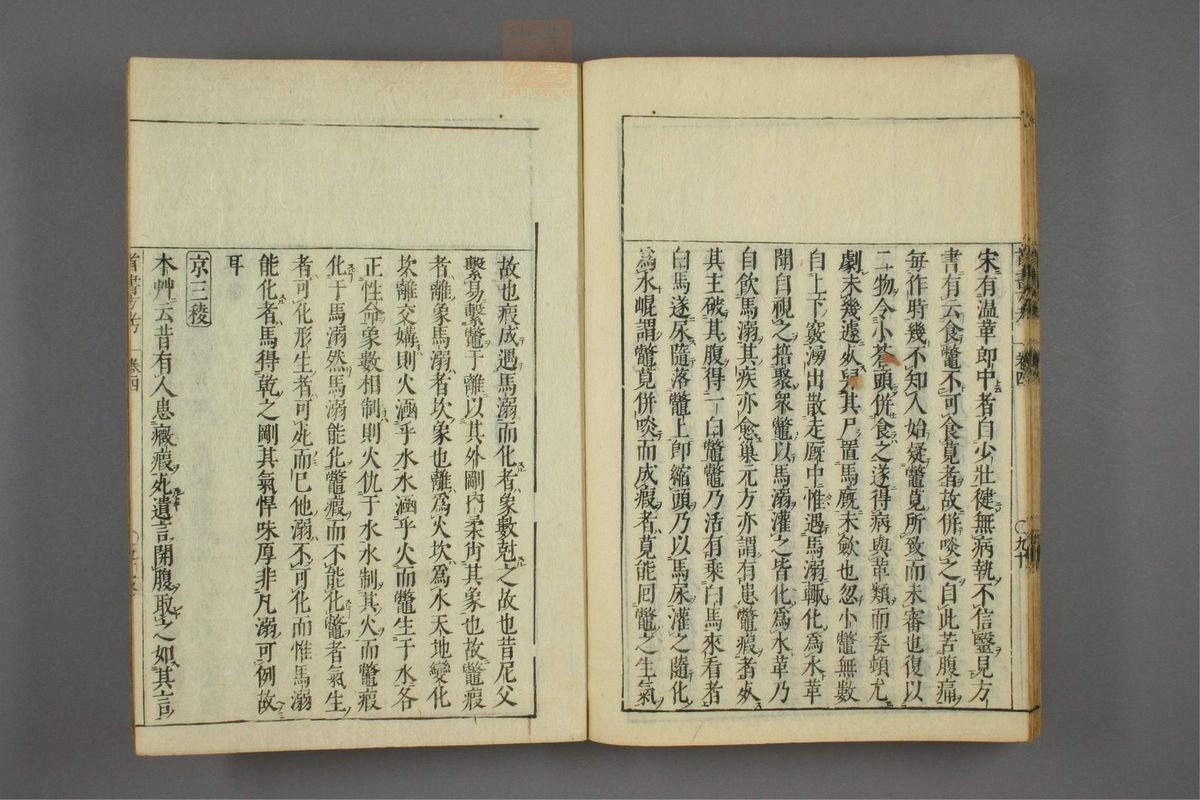 宋有温革郎中者自少壯徤無病執不信毉見方
書有云食鼈不可食莧者故併啖之自此苦腹痛
每作時幾不知人始疑鼈莧所致而未審也復以
二物令小蒼頭併食之遂得病與革類而委頓尤
劇未幾遽殀舁其尸置馬厩未歛也忽小鼈無數
自上下竅湧出散走厩中惟遇馬溺輒化爲水革
聞自視之掊聚衆鼈以馬溺灌之皆化爲水革乃
自飲馬溺其疾亦愈巢元方亦謂有患鼈瘕者殀
其主破其腹得一白鼈鼈乃活有乘白馬來看者
白馬遂尿隨落鼈上卽縮頭乃以馬尿灌之隨化
爲水崐謂鼈莧併啖而成瘕者莧能回鼈之生氣
故也瘕成遇馬溺而化者象數尅之故也昔尼父
繫易繫鼈于離以其外剛内柔肖其象也故鼈瘕
者離象馬溺者坎象也離爲火坎爲水天地變化
坎離交媾則火涵乎水水涵乎火而鼈生于水各
正性命象數相制則火仇于水水制其火而鼈瘕
化于馬溺然馬溺能化鼈瘕而不能化鼈者氣生
者可化形生者可𣦸而已他溺不可化而惟馬溺
能化者馬得乾之剛其氣悍味厚非凡溺可例故
耳
京三稜
本艸云昔有人患癥瘕𣦸遺言開腹取之如其言
卷四